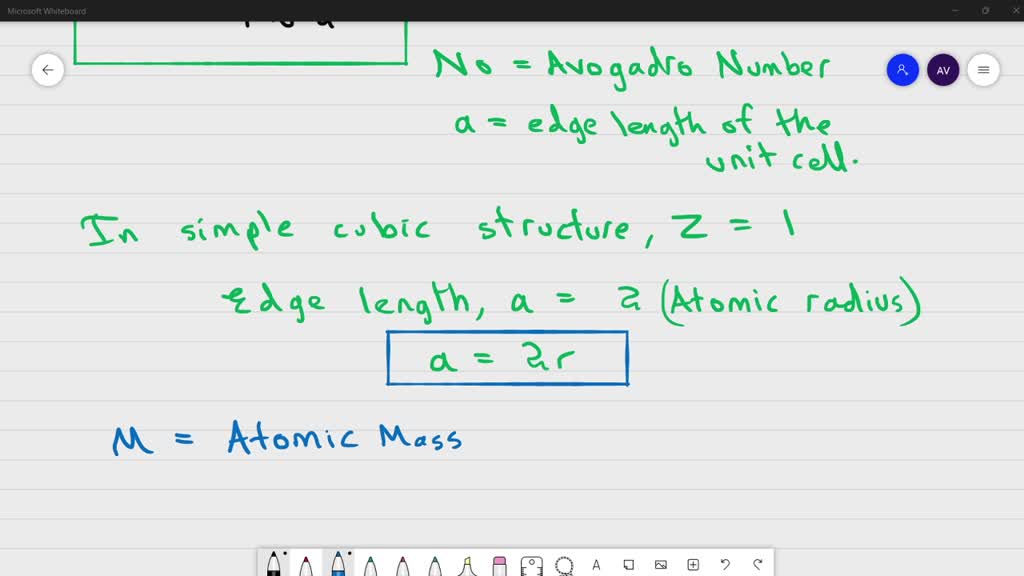 Microsoft Whiteboard
No = Avogadro Number
AV
a = edge length of the
unit cell.
In simple cubic structure, Z = 1
Edge length, a = 2 (Atomic radius)
a = 2r
M = Atomic Mass